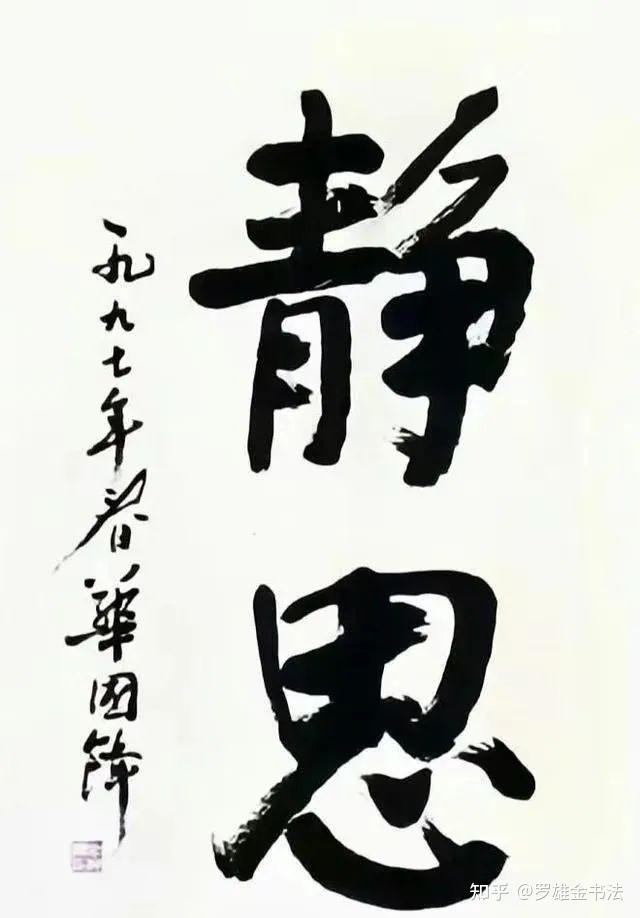 静思
一九九七年春华国锋
知乎 @罗雄金书法